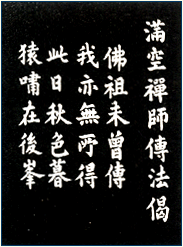 滿空禪師傳法偈
佛祖未曾傳
我亦無所得
此日秋色暮
猿嘯在後峯